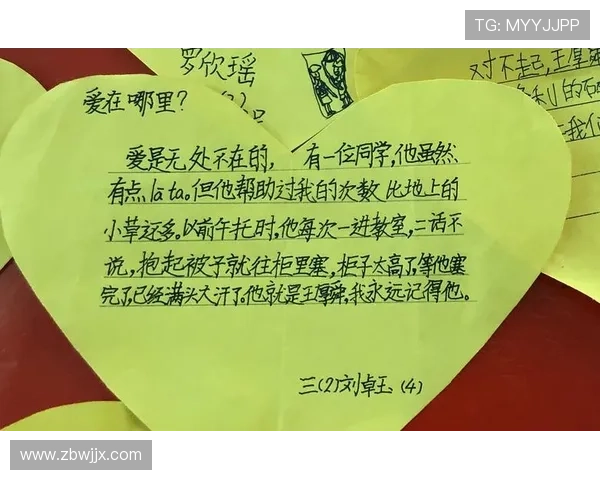 TG: MYYJJPP
罗欣瑶
对不起,王厚
爱在哪里?
爱是无处不在的, 有一位同学,他虽然
有点lā ta。但他帮助过我的次数 比地上的
小草还多。以前午托时,他每次一进教室,二话不
说,抱起被子就往柜里塞,柜子太高了,等他塞
完了,已经满头大汗了。他就是王厚舜,我永远记得他。
三(2)刘卓玉 (4)
www.zbwjjx.com